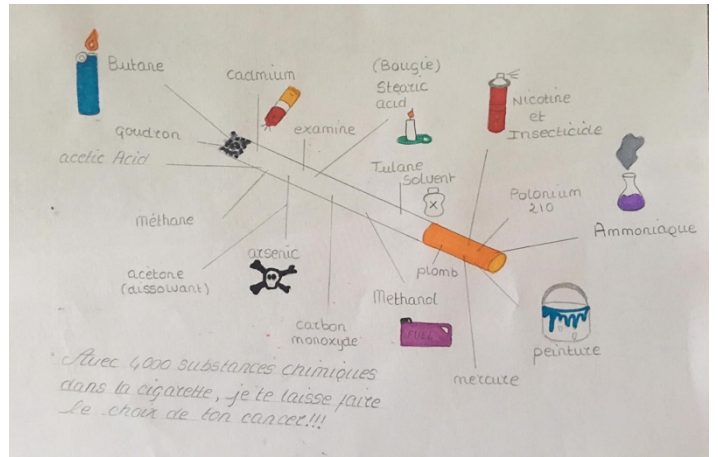 Butane
cadmium
(Bougie)
Stearic
acid
Nicotine
et
Insecticide
goudron
examine
acetic Acid
Tulane
Solvent
Polonium
210
méthane
Ammoniaque
arsenic
plomb
acétone
(dissolvant)
Methanol
FUEL
carbon
monoxyde
peinture
mercure
Avec 4000 substances chimiques
dans la cigarette, je te laisse faire
le choix de ton cancer!!!